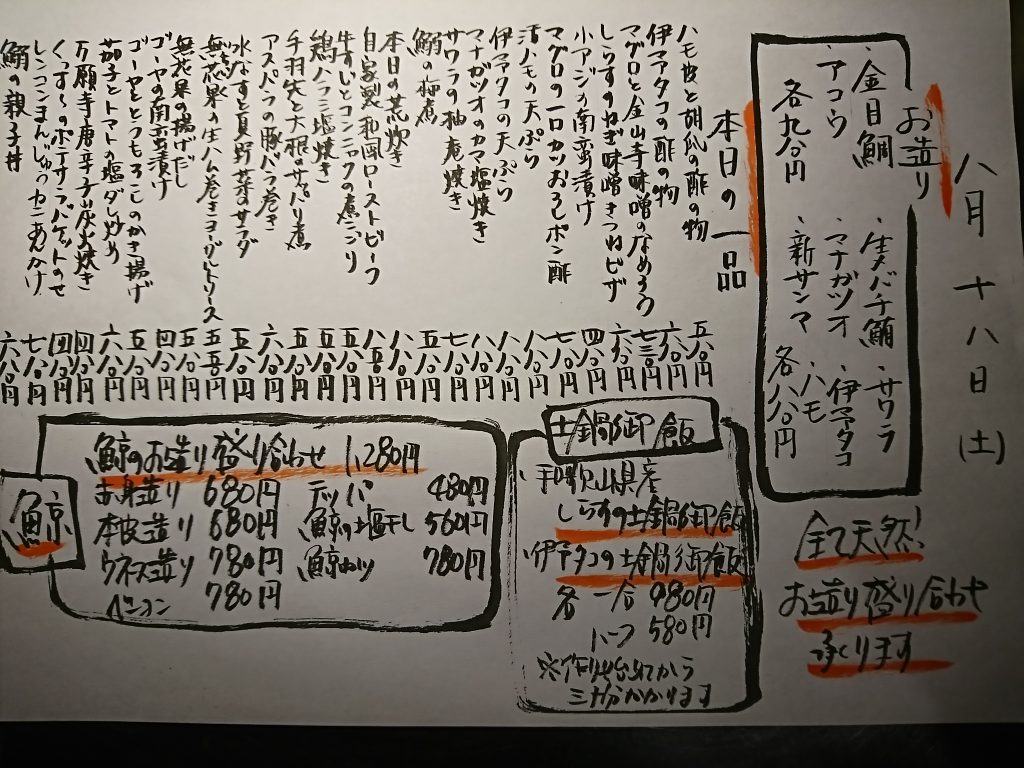 八月十八日(土)
お造り
・金目鯛
・アコウ
各九八〇円
・生メバチ鮪
・サワラ
・マナガツオ
・伊予タコ
・新サンマ
・ハモ
各八八〇円
全て天然!
お造り盛り合わせ
承ります
本日の一品
ハモ皮と胡瓜の酢の物 五八〇円
伊予タコの酢の物 六八〇円
マグロと金山寺味噌のなめろう 七三〇円
しらすのねぎ味噌きつねピザ 六八〇円
小アジの南蛮漬け 四八〇円
マグロの一口カツおろしポン酢 七八〇円
活ハモの天ぷら 八八〇円
伊予タコの天ぷら 八八〇円
マナガツオのカマ塩焼き 八八〇円
サワラの柚庵焼き 七八〇円
鰯の梅煮 五八〇円
本日の荒炊き 八八〇円
自家製和風ローストビーフ 八五〇円
牛すじとコンニャクの煮こごり 五八〇円
鶏ハラミ塩焼き 五八〇円
手羽先と大根のサッパリ煮 五八〇円
アスパラの豚バラ巻き 六八〇円
水なすと夏野菜のサラダ 五八〇円
無花果の生ハム巻きヨーグルトソース 五五〇円
無花果の揚げだし 五八〇円
ゴーヤの南蛮漬け 四八〇円
ゴーヤととうもろこしのかき揚げ 五八〇円
茄子とトマトの塩ダレ炒め 六八〇円
万願寺唐辛子炭火焼き 四八〇円
くっす〜のポテサラバケットのせ 四八〇円
レンコンまんじゅうカニあんかけ 七八〇円
鰯の親子丼 六八〇円
土鍋御飯
・和歌山県産
しらすの土鍋御飯
・伊予タコの土鍋御飯
各 一合 980円
ハーフ 580円
※作り始めてから
三十分かかります
鯨
鯨のお造り盛り合わせ 1,280円
赤身造り 680円
本皮造り 680円
ウネス造り 780円
ベーコン 780円
テッパ 480円
鯨の塩干し 560円
鯨カツ 780円